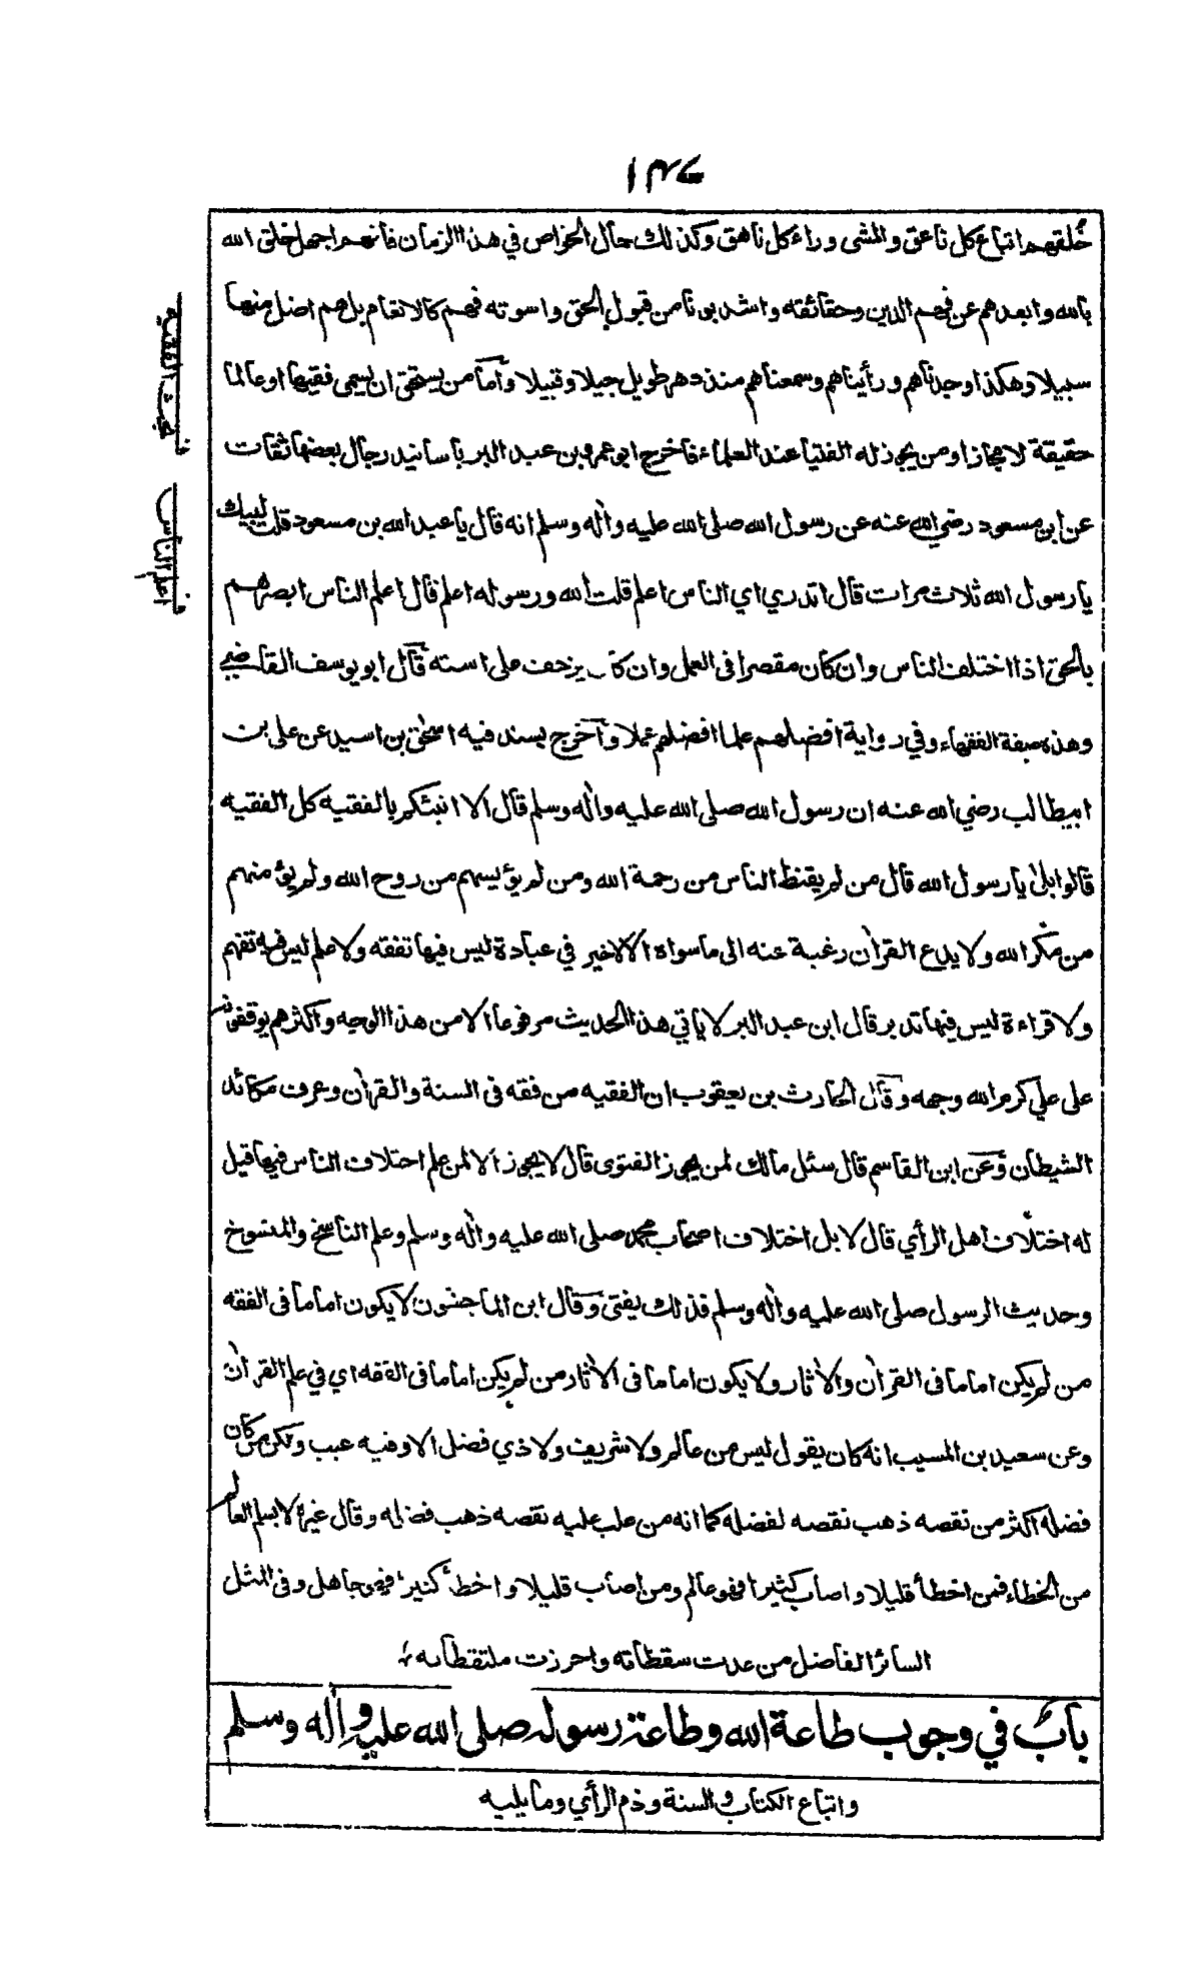 ١٣٤
خُلقهم اتباع كل ناعق والمشي وراء كل ناهق وكذلك حال الخواص في هذا الزمان فانهم اجهل خلق الله
بالله وابعدهم عن فهم الدين وحقائقه واشد بونا من قبول الحق واسوته فهم كالانعام بل هم اضل منها
سبيلا وهكذا وجدناهم ورأيناهم وسمعناهم منذ دهر طويل جيلا وقبيلا وأما من يستحق ان يسمى فقيها او عالما
حقيقة لا مجازا ومن يجوز له الفتيا عند العلماء فأخرج ابو عمرو بن عبد البر باسانيد رجال بعضها ثقات
عن ابن مسعود رضي الله عنه عن رسول الله صلى الله عليه وآله وسلم انه قال يا عبد الله بن مسعود قلت لبيك
يا رسول الله ثلاث مرات قال اتدري اي الناس اعلم قلت الله ورسوله اعلم قال اعلم الناس ابصرهم
بالحق اذا اختلف الناس وان كان مقصرا في العمل وان كان يزحف على استه قال ابو يوسف القاضي
وهذه صفة الفقهاء وفي رواية افضلهم علما افضلهم عملا وأخرج بسند فيه اسحق بن اسيد عن علي بن
ابيطالب رضي الله عنه ان رسول الله صلى الله عليه وآله وسلم قال الا انبئكم بالفقيه كل الفقيه
قالوا بلى يا رسول الله قال من لم يقنط الناس من رحمة الله ومن لم يؤيسهم من روح الله ولم يؤمنهم
من مكر الله ولا يدع القرآن رغبة عنه الى ما سواه الا لاخير في عبادة ليس فيها تفقه ولا علم ليس فيه تفهم
ولا قراءة ليس فيها تدبر قال ابن عبد البر لا يأتي هذا الحديث مرفوعا الا من هذا الوجه واكثرهم يوقفونه
على علي كرم الله وجهه وقال الحارث بن يعقوب ان الفقيه من فقه في السنة والقرآن وعرف مكائد
الشيطان وعن ابن القاسم قال سئل مالك لمن يجوز الفتوى قال لا يجوز الا لمن علم اختلاف الناس فيها قيل
له اختلاف اهل الرأي قال لا بل اختلاف اصحاب محمد صلى الله عليه وآله وسلم وعلم الناسخ والمنسوخ
وحديث الرسول صلى الله عليه وآله وسلم فذلك يفتى وقال ابن الماجشون لا يكون اماما في الفقه
من لم يكن اماما في القرآن والآثار ولا يكون اماما في الآثار من لم يكن اماما في الفقه اي في علم القرآن
وعن سعيد بن المسيب انه كان يقول ليس من عالم ولا شريف ولا ذي فضل الا وفيه عيب ولكن من كان
فضله اكثر من نقصه ذهب نقصه لفضله كما انه من غلب عليه نقصه ذهب فضله وقال غيره لا يسلم العالم
من الخطاء فمن اخطأ قليلا واصاب كثيرا فهو عالم ومن اصاب قليلا واخطأ كثيرا فهو جاهل وفي المثل
السائر الفاضل من عدت سقطاته واحرزت ملتقطاته
باب في وجوب طاعة الله وطاعة رسوله صلى الله عليه وآله وسلم
واتباع الكتاب والسنة وذم الرأي وما يليه
ف حد الفقيه
ف اعلم الناس